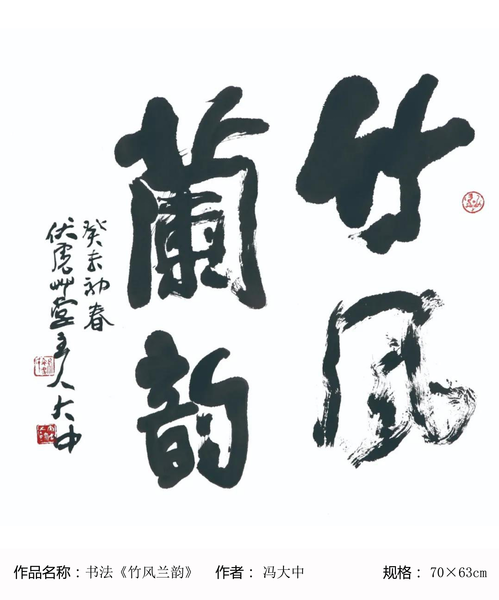 竹风
蘭韵
癸未初春
伏虎艸堂主人大中
作品名称：书法《竹风兰韵》 作者： 冯大中 规格： 70×63cm